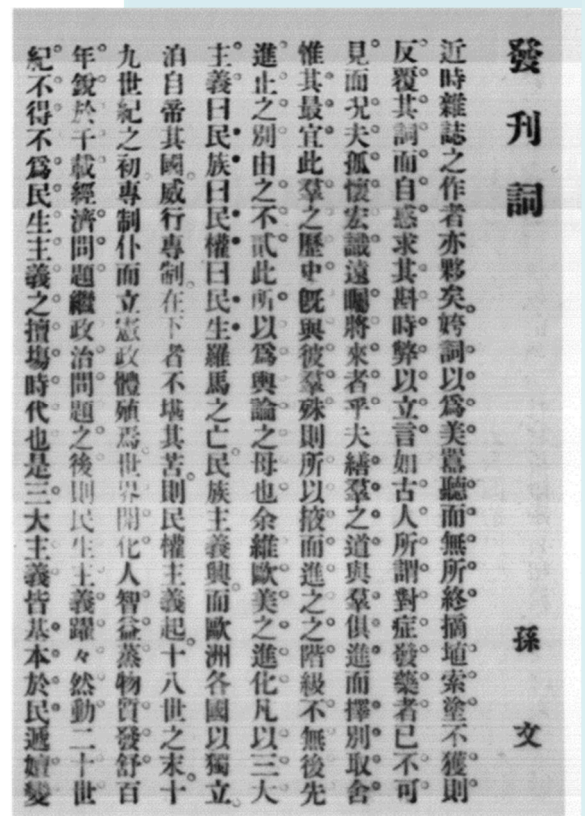 發刊詞　孫文
近時雜誌之作者亦夥矣。姱詞以爲美。囂聽而無所終。摘埴索塗不獲則
反覆其詞而自惑。求其斟時弊以立言。如古人所謂對症發藥者已不可
見。而况夫孤懷宏識遠矚將來者乎。夫繕羣之道。與羣俱進。而擇別取舍。
惟其最宜。此羣之歷史旣與彼羣殊則所以掖而進之之階級。不無後先
進止之別。由之不貳此所以爲輿論之母也。余維歐美之進化。凡以三大
主義。曰民族。曰民權。曰民生。羅馬之亡。民族主義興。而歐洲各國以獨立。
洎自帝其國。威行專制。在下者不堪其苦。則民權主義起。十八世之末。十
九世紀之初。專制仆而立憲政體殖焉。世界開化。人智益蒸。物質發舒。百
年銳於千載。經濟問題繼政治問題之後。則民生主義躍々然動。二十世
紀不得不爲民生主義之擅塲時代也。是三大主義皆基本於民遞嬗變